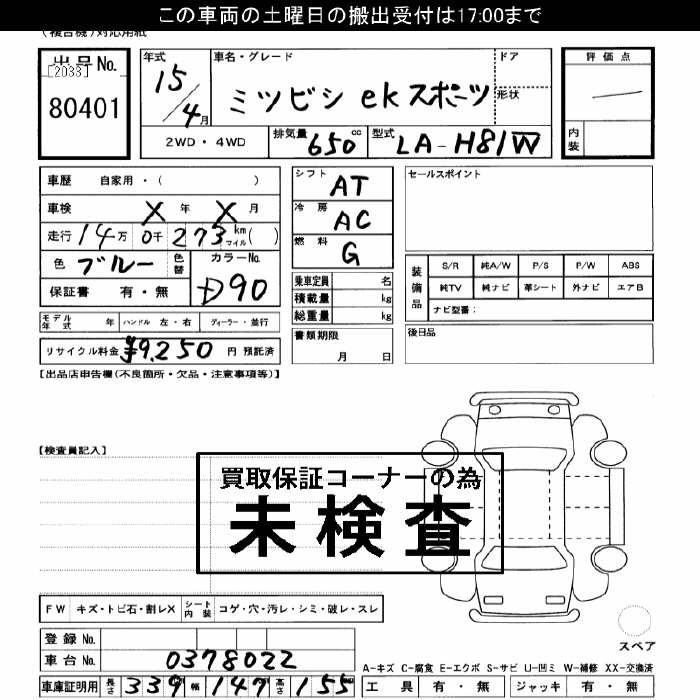 この車両の土曜日の搬出受付は17:00まで
(複合機)対応用紙
出品No.
[2033]
80401
年式
15/4月
車名・グレード
ミツビシ ekスポーツ
ドア
形状
評価点
内装
2WD・4WD
排気量 650cc
型式 LA-H81W
車歴 自家用・( )
車検 X年 X月
走行 14万0千273 km マイル( )
色 ブルー
色替
カラーNo.
D90
保証書 有・無
シフト AT
冷房 AC
燃料 G
乗車定員 名
積載量 kg
総重量 kg
書類期限
月 日
セールスポイント
装備品
S/R 純A/W P/S P/W ABS
純TV 純ナビ 革シート 外ナビ エアB
ナビ型番:
後日品
モデル年式 年 ハンドル 左・右 ディーラー・並行
リサイクル料金 ¥9,250 円 預託済
【出品店申告欄(不良箇所・欠品・注意事項等)】
【検査員記入】
買取保証コーナーの為
未検査
FW キズ・トビ石・割レX シート内装 コゲ・穴・汚レ・シミ・破レ・スレ
スペア
登録No.
車台No. 0378022
車庫証明用 長さ 339 幅 147 高さ 155
A-キズ C-腐食 E-エクボ S-サビ U-凹ミ W-補修 XX-交換済
工具 有・無 ジャッキ 有・無